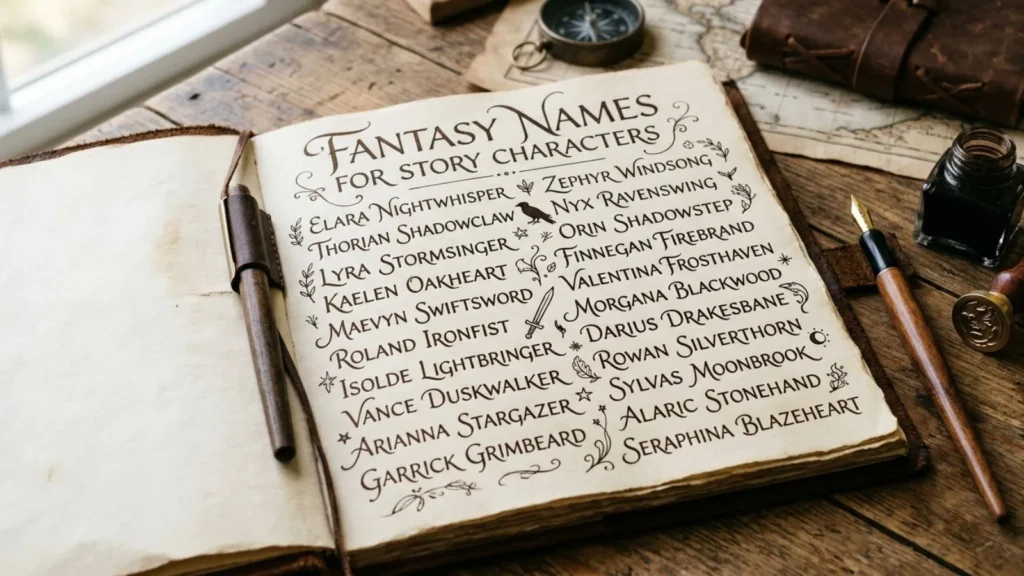 FANTASY NAMES
FOR STORY CHARACTERS
ELARA NIGHTWHISPER
THORIAN SHADOWCLAW
LYRA STORMSINGER
KAELEN OAKHEART
MAEVYN SWIFTSWORD
ROLAND IRONFIST
ISOLDE LIGHTBRINGER
VANCE DUSKWALKER
ARIANNA STARGAZER
GARRICK GRIMBEARD
ZEPHYR WINDSONG
NYX RAVENSWING
ORIN SHADOWSTEP
FINNEGAN FIREBRAND
VALENTINA FROSTHAVEN
MORGANA BLACKWOOD
DARIUS DRAKESBANE
ROWAN SILVERTHORN
SYLVAS MOONBROOK
ALARIC STONEHAND
SERAPHINA BLAZEHEART